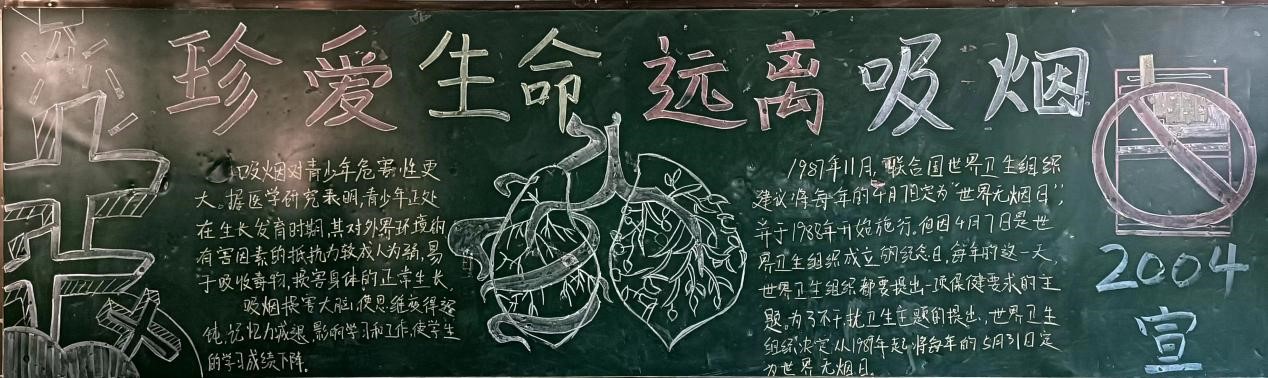 珍爱生命 远离吸烟
吸烟对青少年危害性更
大。据医学研究表明,青少年正处
在生长发育时期,其对外界环境的
有害因素的抵抗力较成人为弱,易
于吸收毒物,损害身体的正常生长。
吸烟损害大脑,使思维变得迟
钝,记忆力减退,影响学习和工作,使学生
的学习成绩下降。
1987年11月,联合国世界卫生组织
建议将每年的4月7日定为“世界无烟日”,
并于1988年开始施行。但因4月7日是世
界卫生组织成立的纪念日,每年的这一天,
世界卫生组织都要提出一项保健要求的主
题。为了不干扰卫生主题的提出,世界卫生
组织决定从1989年起将每年的5月31日定
为世界无烟日。
2004
宣